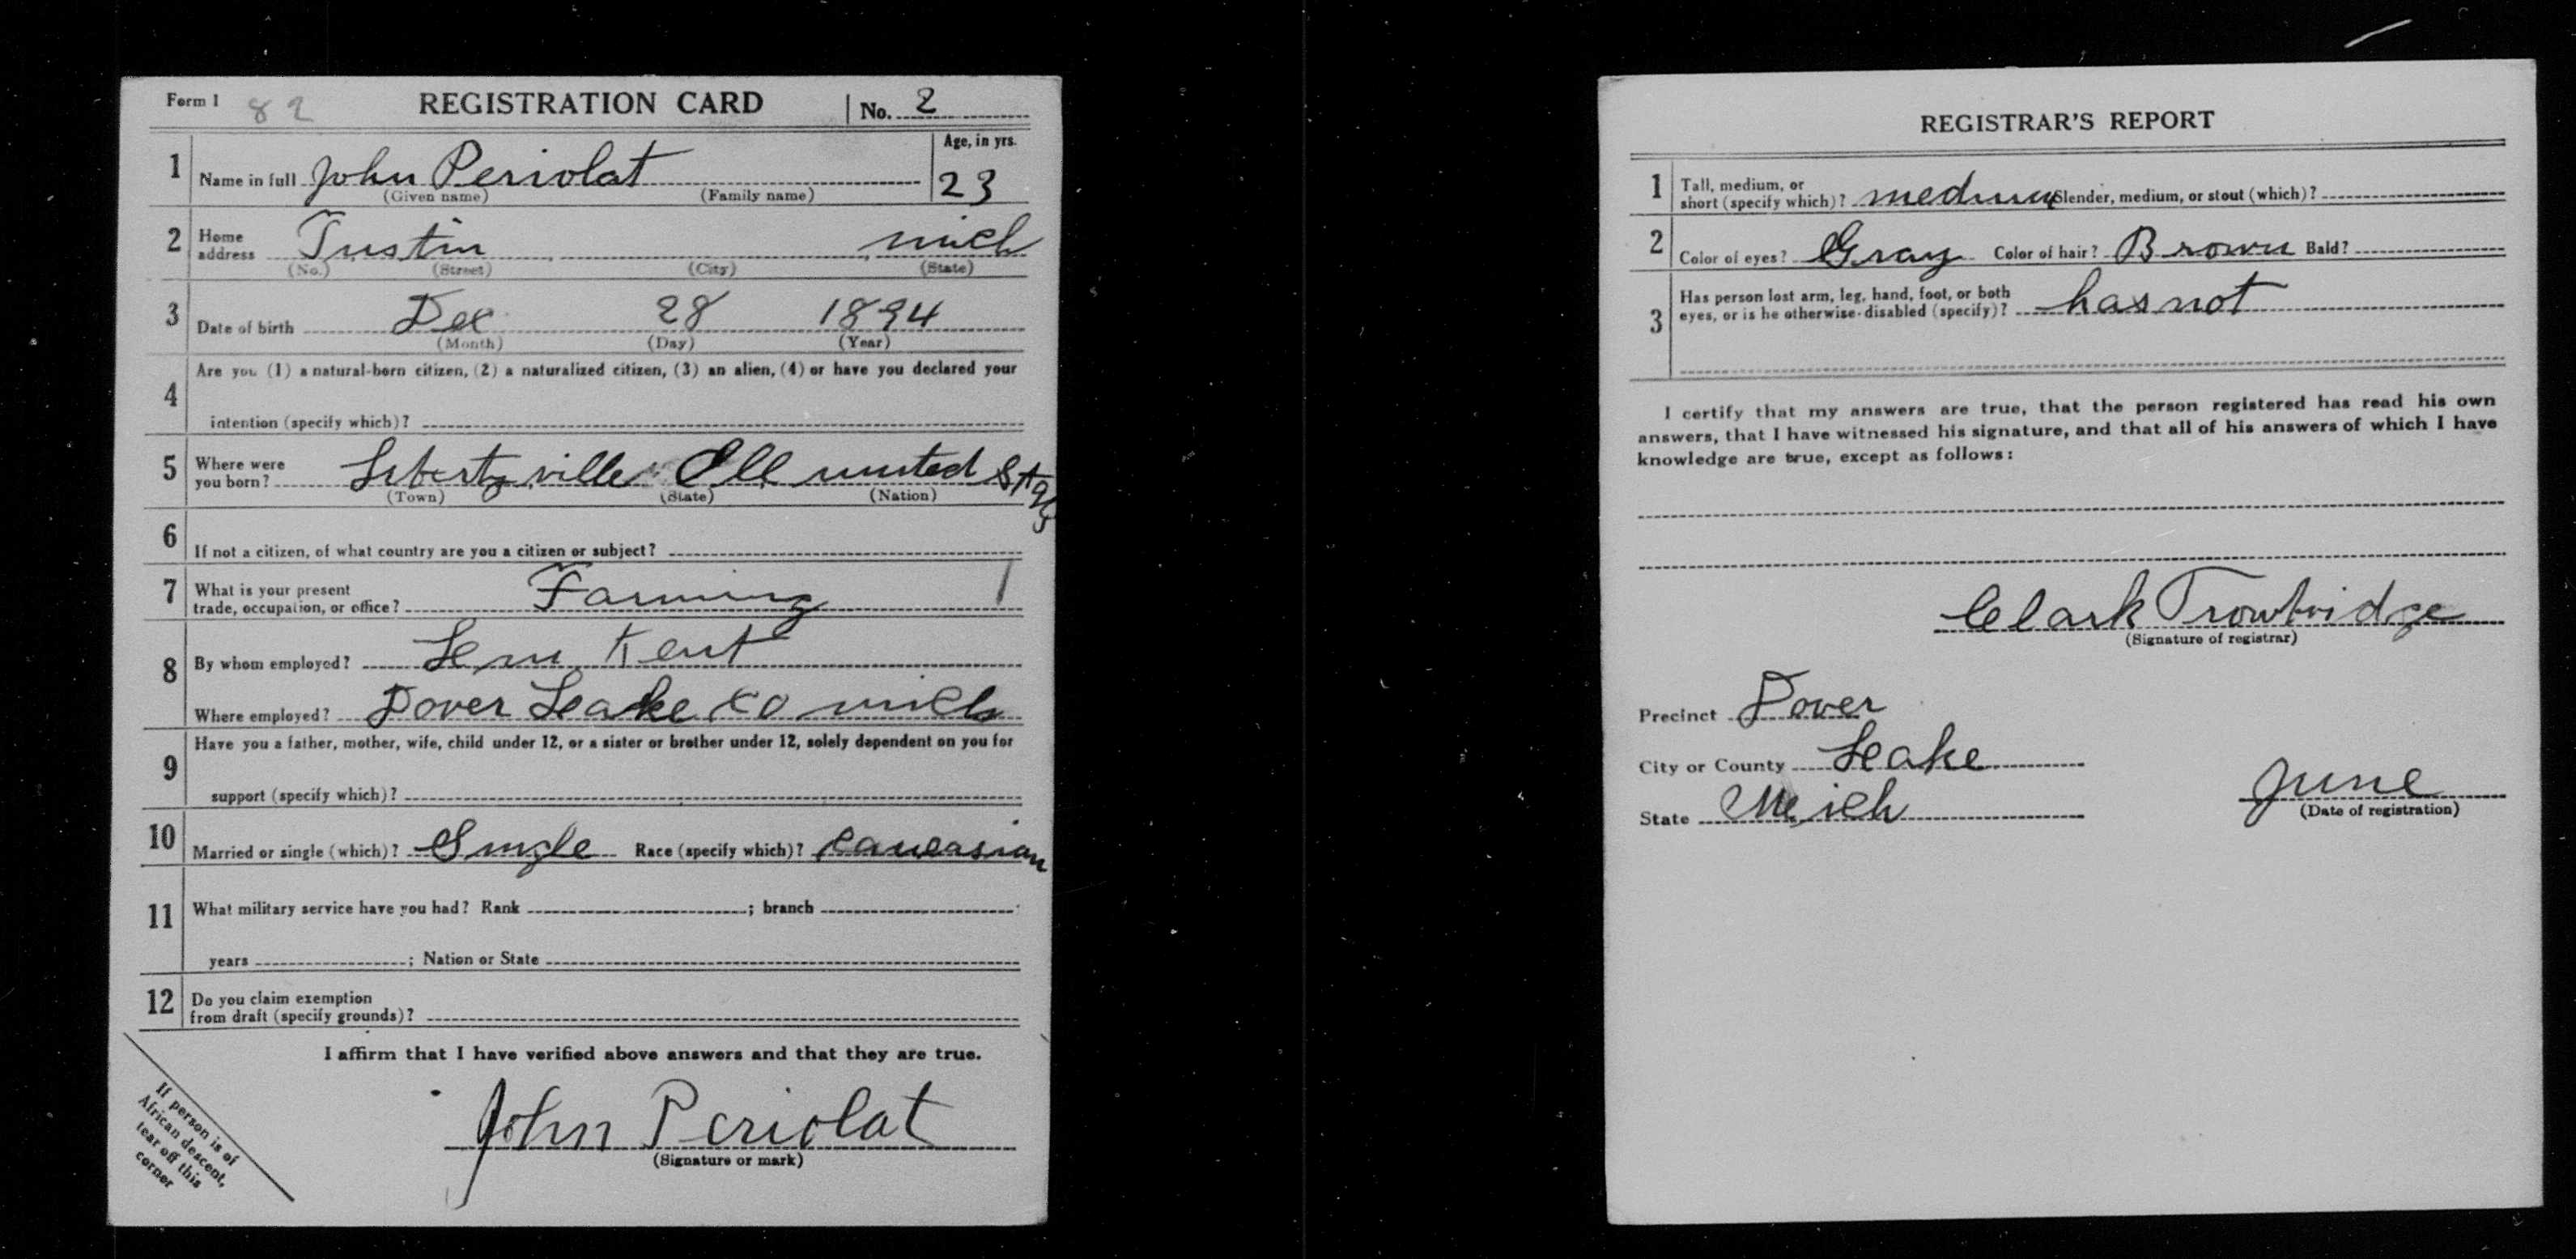 Form 1 82 REGISTRATION CARD No. 2
Age, in yrs.
1 Name in full John Periolat 23
(Given name) (Family name)
2 Home address Tustin mich
(No.) (Street) (City) (State)
3 Date of birth Dec 28 1894
(Month) (Day) (Year)
4 Are you (1) a natural-born citizen, (2) a naturalized citizen, (3) an alien, (4) or have you declared your
intention (specify which)?
5 Where were you born? Libertyville Ill united States
(Town) (State) (Nation)
6 If not a citizen, of what country are you a citizen or subject?
7 What is your present trade, occupation, or office? Farming 1
8 By whom employed? Lem Kent
Where employed? Dover Leake Co mich
9 Have you a father, mother, wife, child under 12, or a sister or brother under 12, solely dependent on you for
support (specify which)?
10 Married or single (which)? Single Race (specify which)? Caucasian
11 What military service have you had? Rank ; branch
years ; Nation or State
12 Do you claim exemption
from draft (specify grounds)?
I affirm that I have verified above answers and that they are true.
John Periolat
(Signature or mark)
If person is of
African descent,
tear off this
corner
REGISTRAR'S REPORT
1 Tall, medium, or short (specify which)? medium Slender, medium, or stout (which)?
2 Color of eyes? Gray Color of hair? Brown Bald?
3 Has person lost arm, leg, hand, foot, or both
eyes, or is he otherwise disabled (specify)? has not
I certify that my answers are true, that the person registered has read his own
answers, that I have witnessed his signature, and that all of his answers of which I have
knowledge are true, except as follows:
Clark Trowbridge
(Signature of registrar)
Precinct Dover
City or County Leake
State Mich June
(Date of registration)